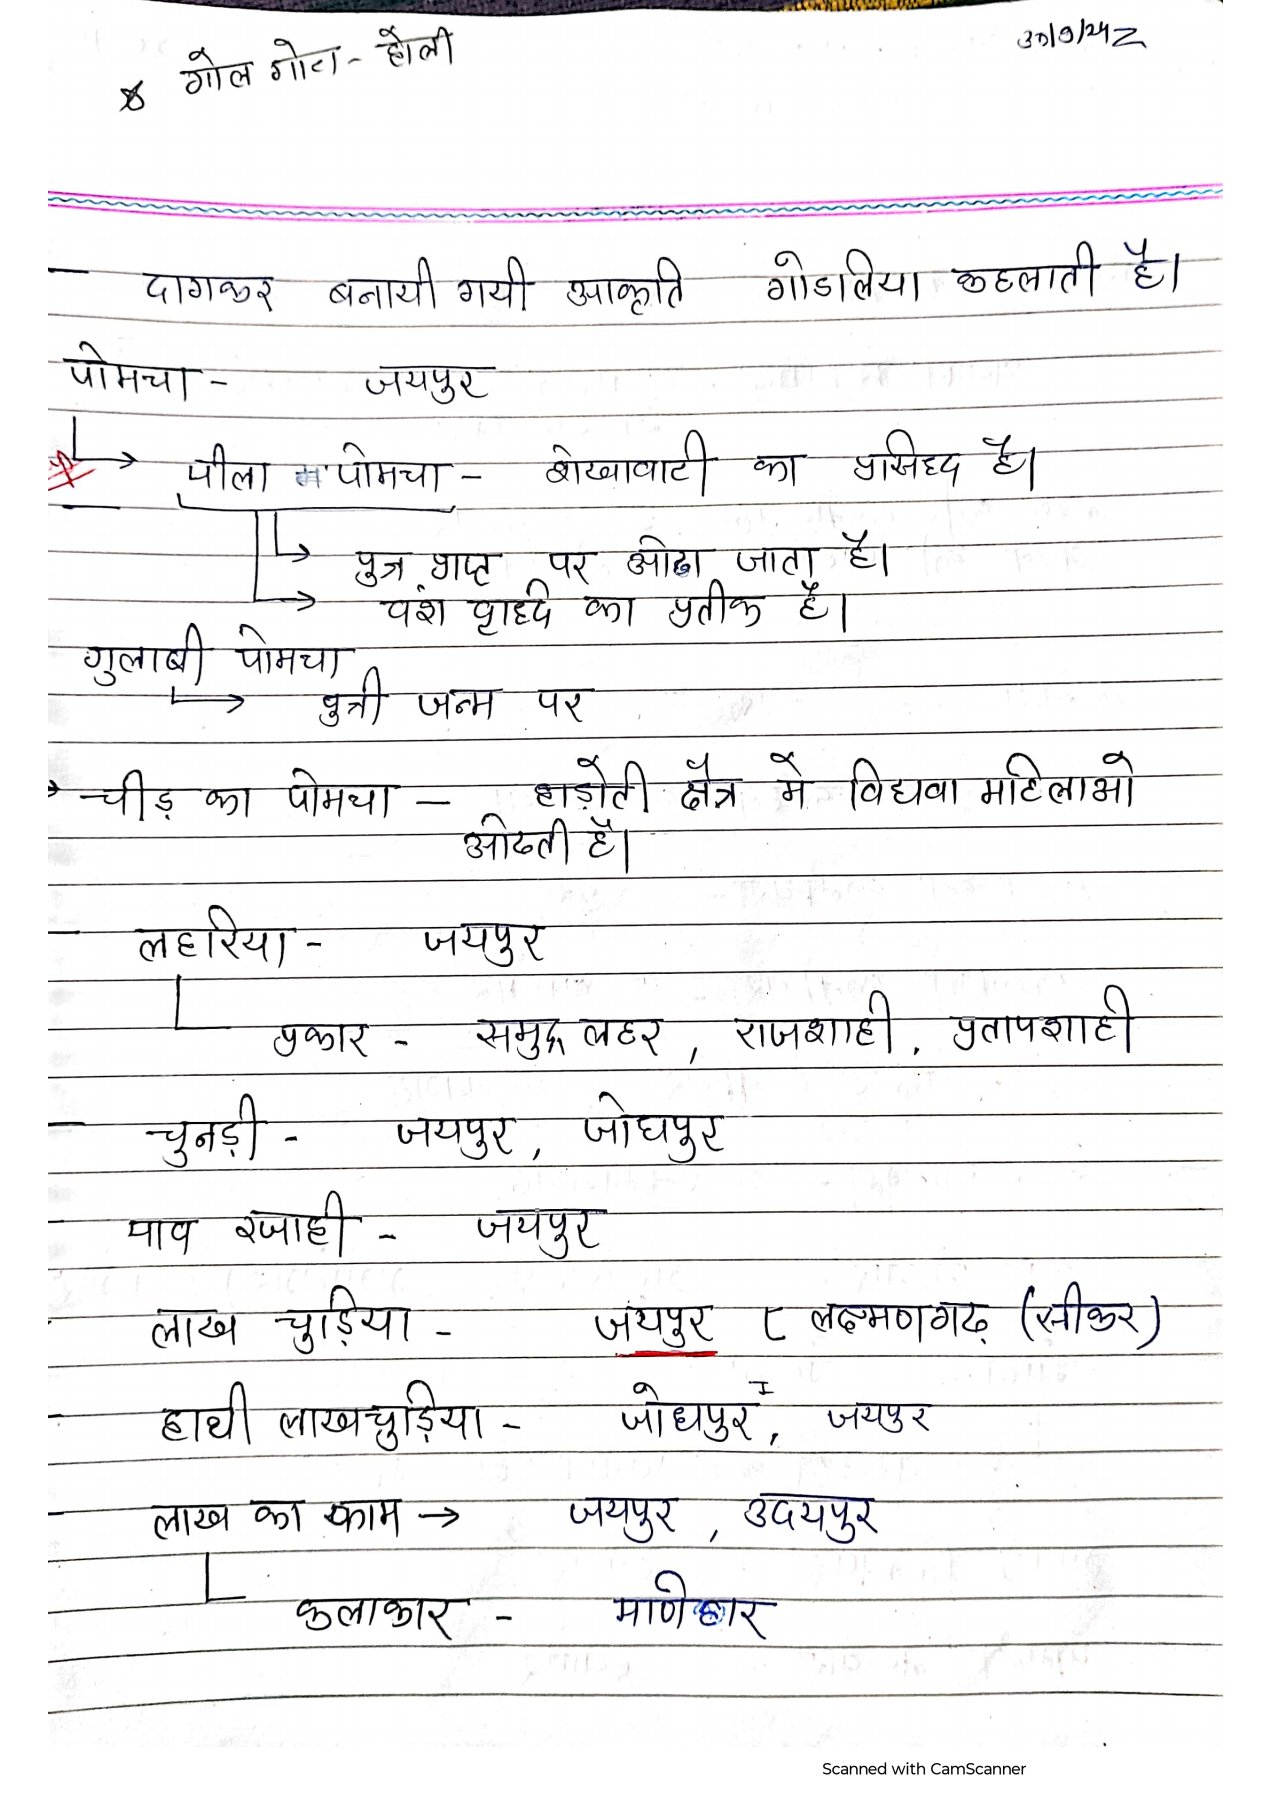 गोल गोटा - होली
दागकर बनायी गयी आकृति गोडालिया कहलाती है।
पोमचा - जयपुर
पीला पोमचा - शेखावाटी का प्रसिध्द है।
पुत्र प्राप्त पर ओढा जाता है।
वंश वृध्दि का प्रतीक है।
गुलाबी पोमचा
पुत्री जन्म पर
चीड़ का पोमचा - हाड़ौती क्षैत्र में विधवा महिलाओ
ओढती है।
लहरिया - जयपुर
प्रकार - समुद्र लहर, राजशाही, प्रतापशाही
चुनड़ी - जयपुर, जोधपुर
पाव रजाही - जयपुर
लाख चुड़िया - जयपुर लक्ष्मणगढ़ (सीकर)
हाथी लाखचुड़िया - जोधपुर I, जयपुर
लाख का काम → जयपुर, उदयपुर
कलाकार - मणिहार
Scanned with CamScanner